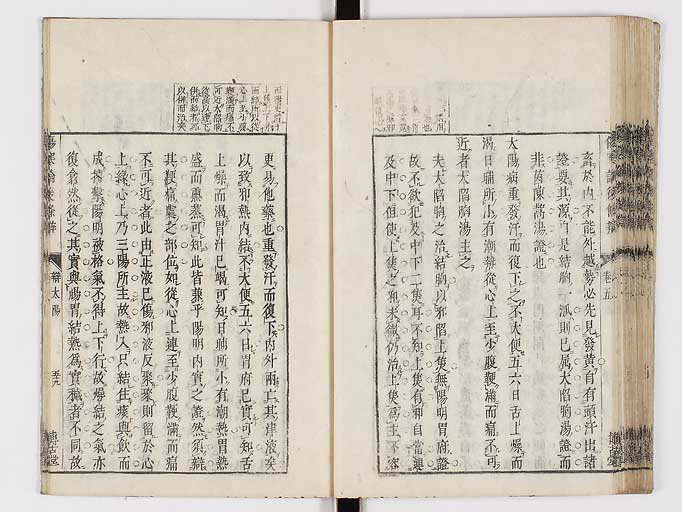 蓄於内不能外越勢必先見發黄自有頭汗出諸
證要其源自是結胸一派則已属大陷胸湯證而
非茵陳蒿湯證也
太陽病重發汗而復下之不大便五六日舌上燥而
渴日晡所小有潮熱從心上至少腹鞕滿而痛不可
近者大陷胸湯主之
夫大陷胸之治結胸以邪陷上焦無陽明胃府證
故不欲犯及中下二焦耳不知上焦有邪自當
及中下但使上焦之邪未徹仍治上焦為主不容
更易他藥也重發汗而復下内外兩亡其津液矣
以致邪熱内結不大便五六日胃府已實可知舌
上燥而渴胃汁已竭可知日晡所小有潮熱胃熱
盛而熏蒸可知此皆兼乎陽明内實之證然須辨
其鞕痛處之部位如從心上連至少腹鞕滿而痛
不可近者此由正液已傷邪液反聚聚則留於心
上緣心上乃三陽所主故熱入只結住痰與飲而
成搏擊陽明被格氣不得上下行故燥結之氣亦
復翕然從之其實與腸胃結熱為實穢者不同故
卷五
辨太陽